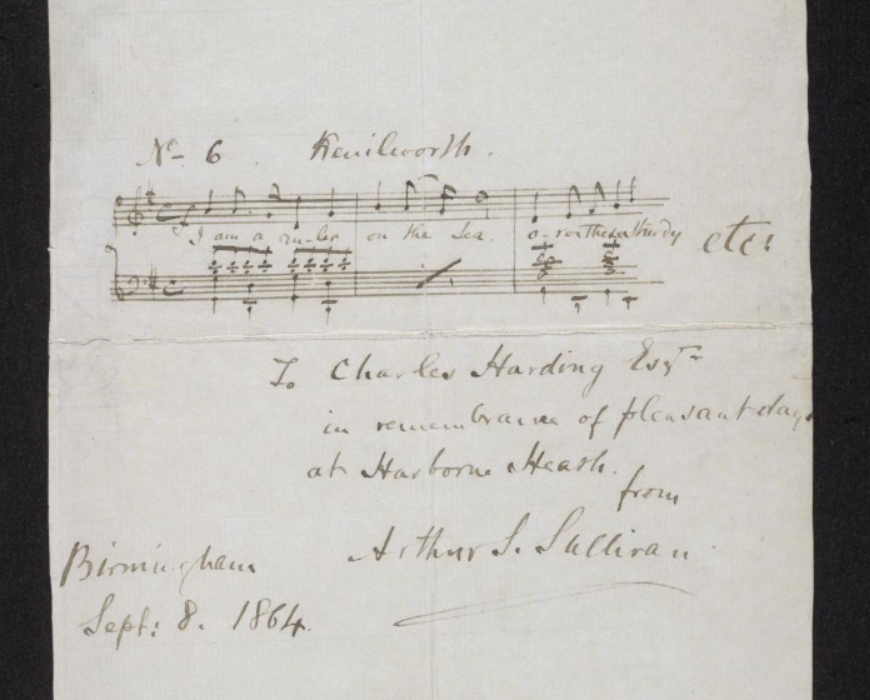 No 6 Kenilworth.
I am a ru-ler on the sea. o'er the sturdy
etc:
To Charles Harding Esqre
in remembrance of pleasant days
at Harborne Heath.
from
Arthur S. Sullivan
Birmingham
Sept: 8. 1864.